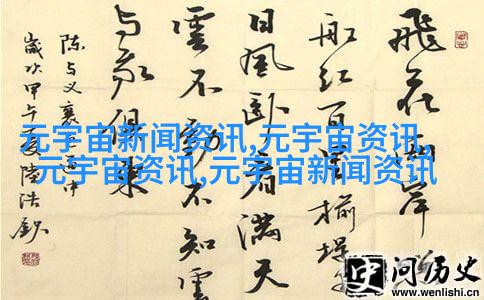 飛花両岸
船红百里榆堤
日風卧看满天
雲不動不知雲
与我俱東
陈与义襄邑道中
歲次甲午夏陸浩
元宇宙新闻资讯,元宇宙资讯,
元宇宙资讯,元宇宙新闻资讯
史问历史
www.wenlishi.cn